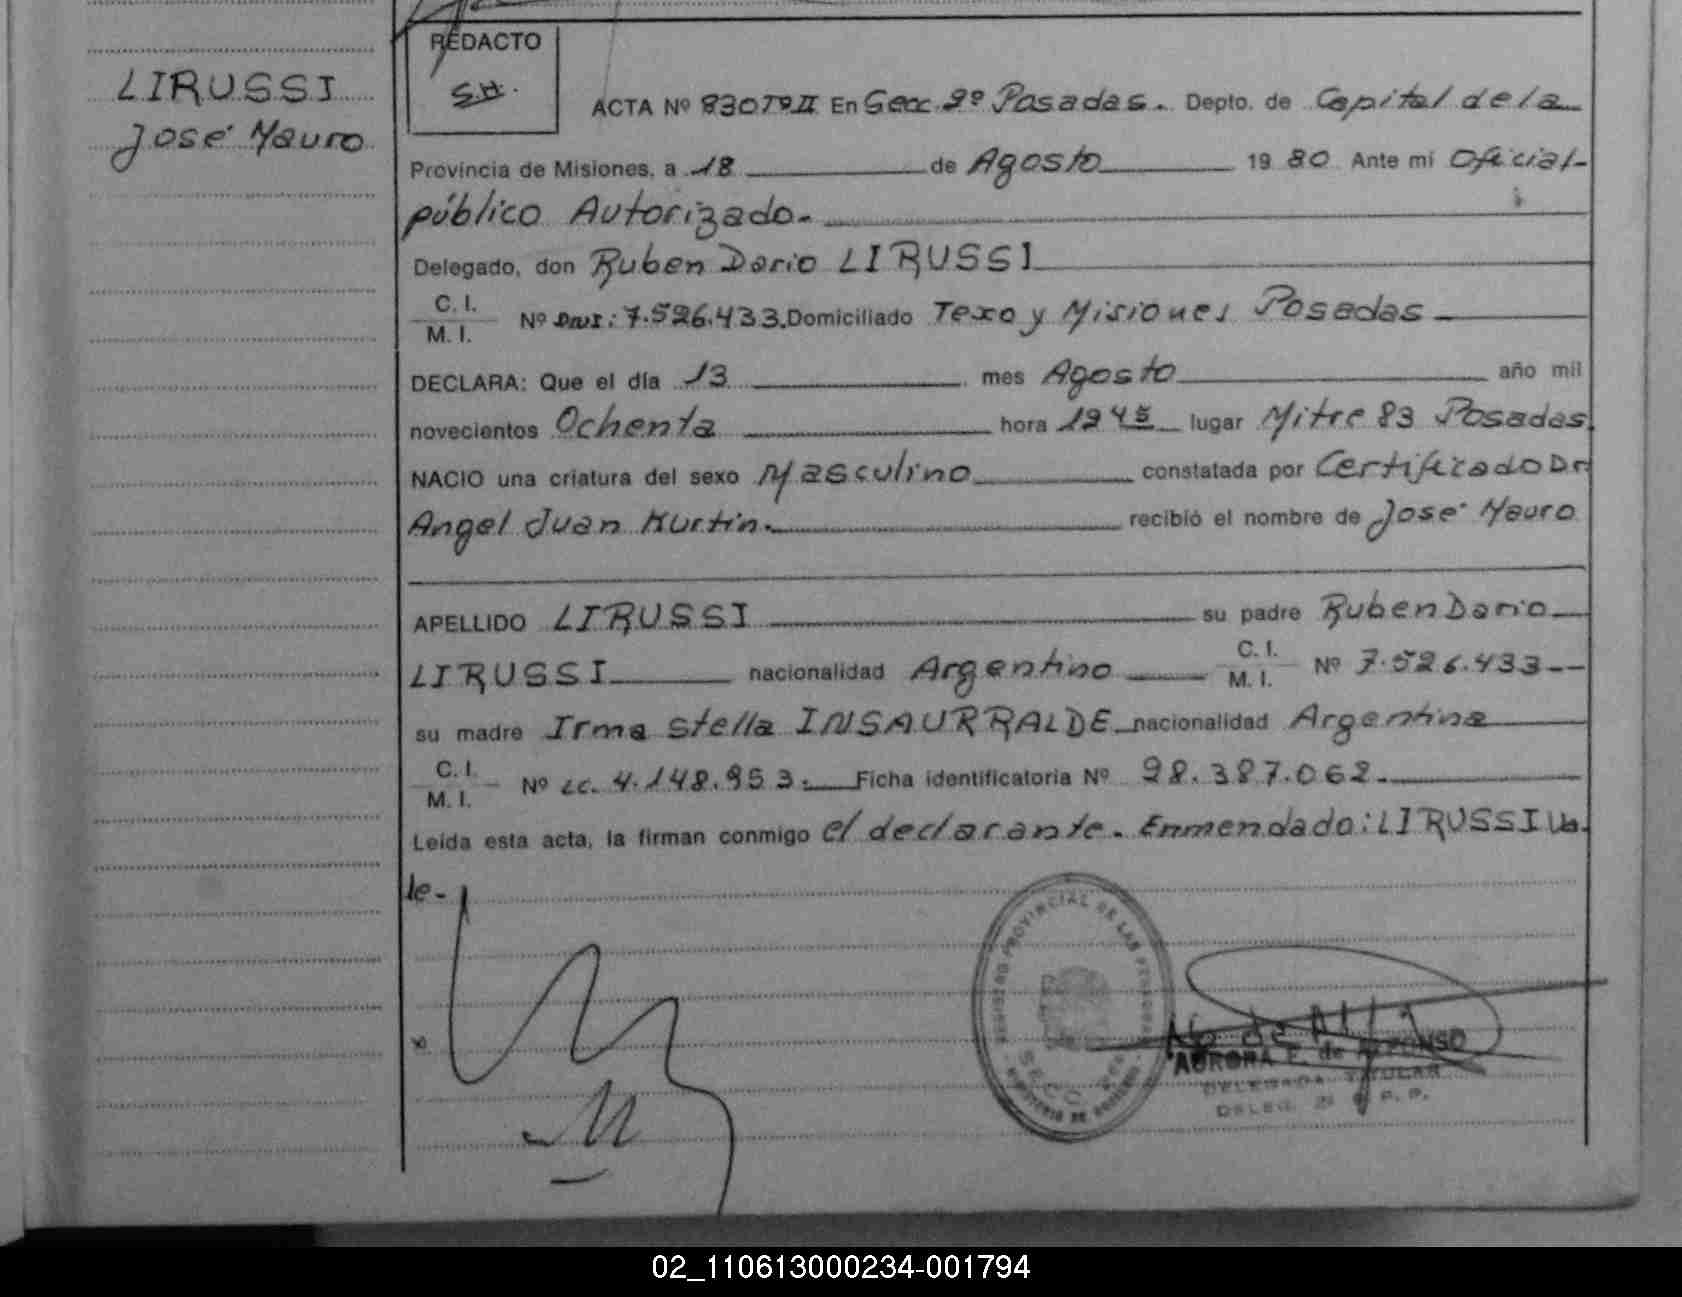 LIRUSSI
José Mauro
REDACTO
S.H.
ACTA Nº 830 Tº II En Secc. 2º Posadas. Depto. de Capital de la
Provincia de Misiones, a 18 de Agosto 1980 Ante mí Oficial
público Autorizado.
Delegado, don Ruben Dario LIRUSSI
C. I.
M. I. Nº DNI: 7.526.433. Domiciliado Texo y Misiones Posadas
DECLARA: Que el día 13 mes Agosto año mil
novecientos Ochenta hora 1245 lugar Mitre 83 Posadas
NACIO una criatura del sexo Masculino constatada por Certificado Dr
Angel Juan Kurtin. recibió el nombre de José Mauro
APELLIDO LIRUSSI su padre Ruben Dario
LIRUSSI nacionalidad Argentino C. I. M. I. Nº 7.526.433--
su madre Irma Stella INSAURRALDE nacionalidad Argentina
C. I.
M. I. Nº LC. 4.148.953. Ficha identificatoria Nº 28.387.062.
Leída esta acta, la firman conmigo el declarante. Enmendado: LIRUSSI Va
le-
REGISTRO PROVINCIAL DE LAS PERSONAS
AURORA F. de ALFONSO
DELEGADA TITULAR
02_110613000234-001794